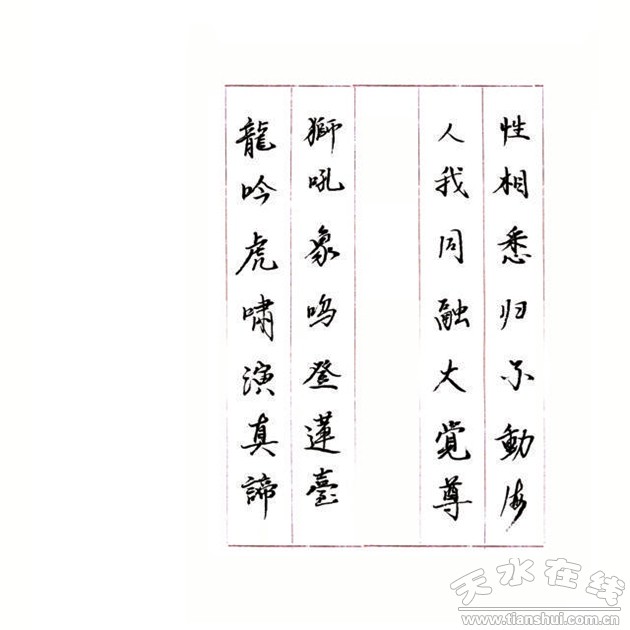 性相悉归不動海
人我同融大覚尊
獅吼象鸣登蓮臺
龍吟虎嘯演真諦
天水在线
www.tianshui.com.cn